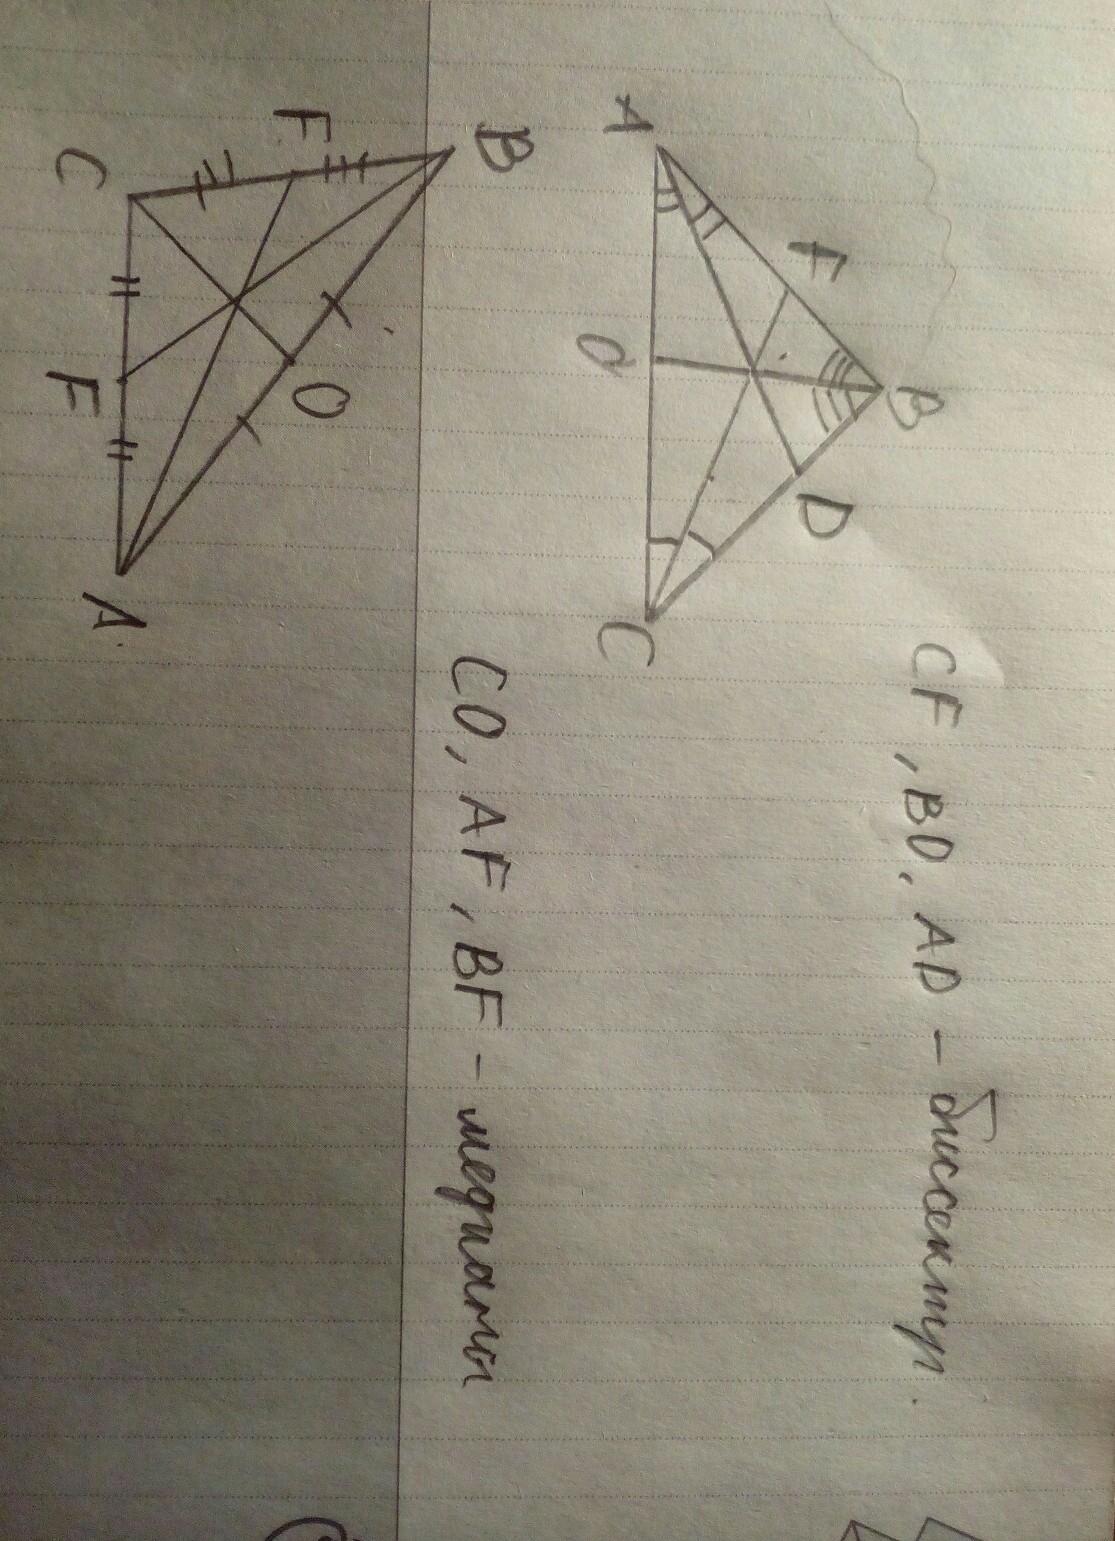 B
F
D
A
O
C
CF, BO, AD - биссектр.
B
F
O
C
F
A
CO, AF, BF - медианы